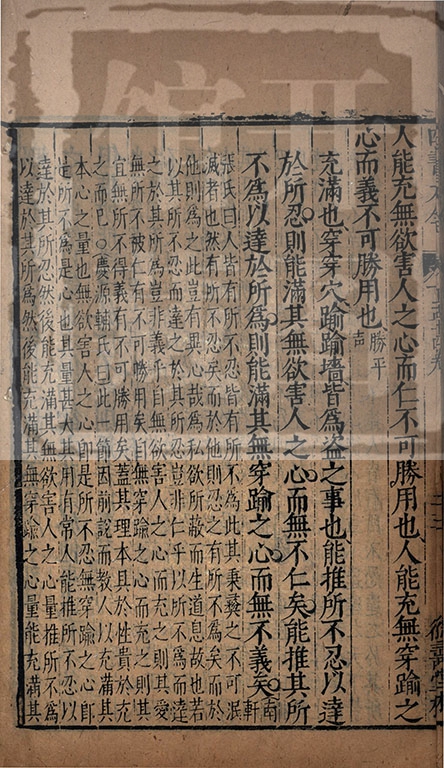 人能充無欲害人之心而仁不可勝用也人能充無穿踰之
心而義不可勝用也勝平聲
充滿也穿穿穴踰踰墻皆為盜之事也能推所不忍以達
於所忍則能滿其無欲害人之心而無不仁矣能推其所
不為以達於所為則能滿其無穿踰之心而無不義矣南軒
張氏曰人皆有所不忍皆有所不為此其秉彝之不可泯
滅者也然有所不忍矣而於他則忍之有所不為矣而於
他則為之此豈有異心哉為私欲所蔽而生道息故也若
以其所不忍而達之於其所忍豈非仁乎以所不為而達
之於其所為豈非義乎自無欲害人之心而充之則其愛
無所不被仁有不可勝用矣自無穿踰之心而充之則其
宜無所不得義有不可勝用矣蓋其理本具於性貴於充
之而已○慶源輔氏曰此一節因前說而教人以充滿其
本心之量也無欲害人之心即是所不忍無穿踰之心即
是所不為是心也其量甚大其用有常人能推所不忍以
達於其所忍然後能充滿其無欲害人之心量推所不為
以達於其所為然後能充滿其無穿踰之心量能充滿其